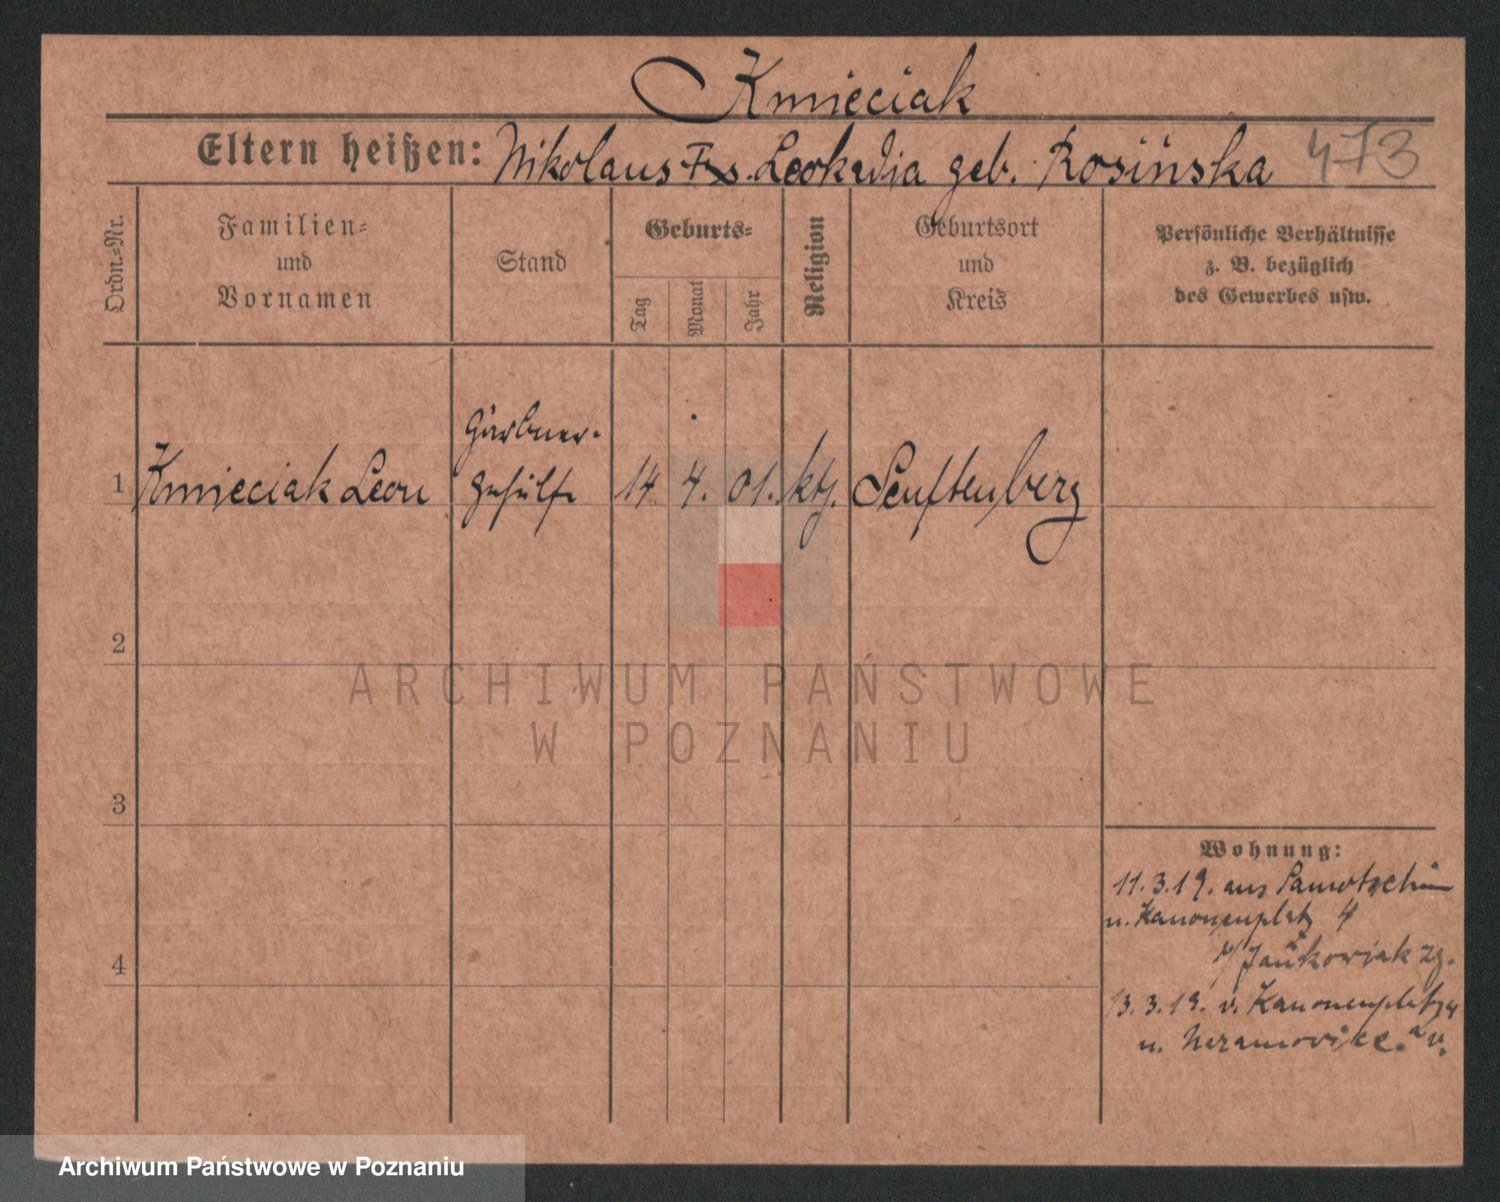 Kmieciak
Eltern heißen: Nikolaus Leokadia geb. Rosińska 473
Ordn.-Nr.
Familien-
und
Vornamen
Stand
Geburts-
Tag
Monat
Jahr
Religion
Geburtsort
und
Kreis
Persönliche Verhältnisse
z. B. bezüglich
des Gewerbes usw.
Gärtner-
1 Kmieciak Leon gehülfe 14 4. 01. kth. Senftenberg
2
ARCHIWUM PAŃSTWOWE
W POZNANIU
3
Wohnung:
11.3.19. aus Samotschin
n. Kanonenplatz 4
Jankowiak zg.
4
13.3.19. v. Kanonenplatz 4
n.
Archiwum Państwowe w Poznaniu